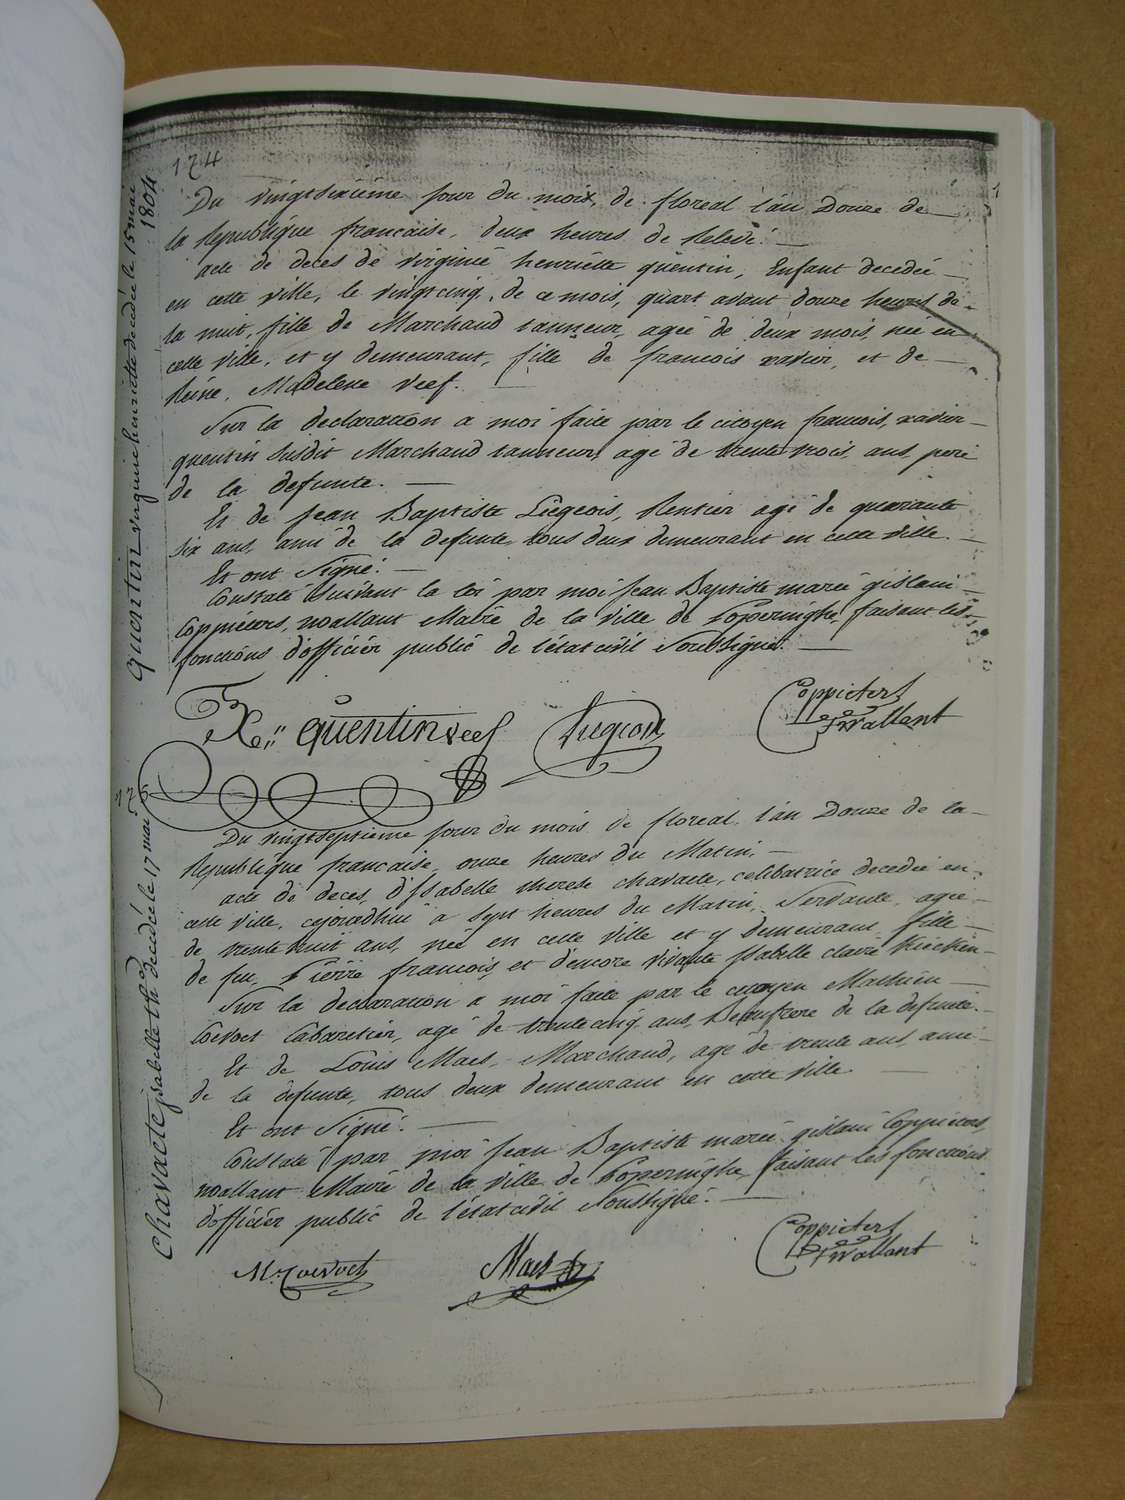 174
quentin virginie henriette decedée le 15 mai 1804
Du vingtsixieme jour du mois, de floreal l'an Douze de
la Republique francaise, deux heures de Relevé.
acte de deces de virginie henriette quentin, Enfant decedée
en cette ville, le vingtcinq, de ce mois, quart avant douze heures de
la nuit, fille de Marchand tanneur, agée de deux mois, née en
cette ville, et y demeurant, fille de francois xavier, et de
Reine, Madelene Veef.
Sur la declaration a moi faite par le citoyen francois, xavier
quentin susdit Marchand tanneur, agé de trente trois ans, pere
de la defunte.
Et de Jean Baptiste Liegeois, Rentier agé de quarante
six ans, ami de la defunte tous deux demeurant en cette ville.
Et ont Signé.
Constaté Suivant la loi par moi Jean Baptiste marie gislain
Coppieters, wallant Maire de la ville de Poperinghe faisant les
fonctions d'officier public de l'état civil Soussigné.
F. X. quentin veef Liegeois Coppieters
f wallant
175
chavaete isabelle th. decedé le 17 mai
Du vingtseptieme jour du mois de floreal l'an Douze de la
Republique francaise, onze heures du Matin.
acte de deces, d'Isabelle therese chavaete, celibatrice decedée en
cette ville, cejourdhui a Sept heures du Matin, Servante, agée
de trente huit ans, née en cette ville et y demeurant fille
de feu Pierre francois, et d'encore vivante Isabelle claire
Sur la declaration a moi faite par le citoyen Mathieu
Coevoet Cabaretier, agé de trente cinq ans, Beaufrere de la defunte.
Et de Louis Maes, Marchand, agé de trente ans, ami
de la defunte, tous deux demeurant en cette ville.
Et ont Signé.
Constaté par moi Jean Baptiste marie gislain Coppieters,
wallant Maire de la ville de Poperinghe faisant les fonctions
d'officier public de l'état civil Soussigné.
M. Coevoet Maes Coppieters
f wallant